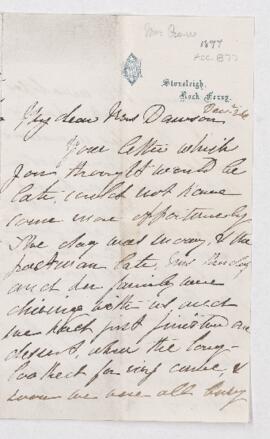 1877
ACC. 877
Stoneleigh,
Rock Ferry.
Decr 26
My dear Mrs Dawson
Your letter which
you thought would be
late, could not have
come more opportunely
The day was
postman late, Mrs
and her family were
dining with us and
we had just finished our
dessert, when the long
looked for came, &
soon we were all busy